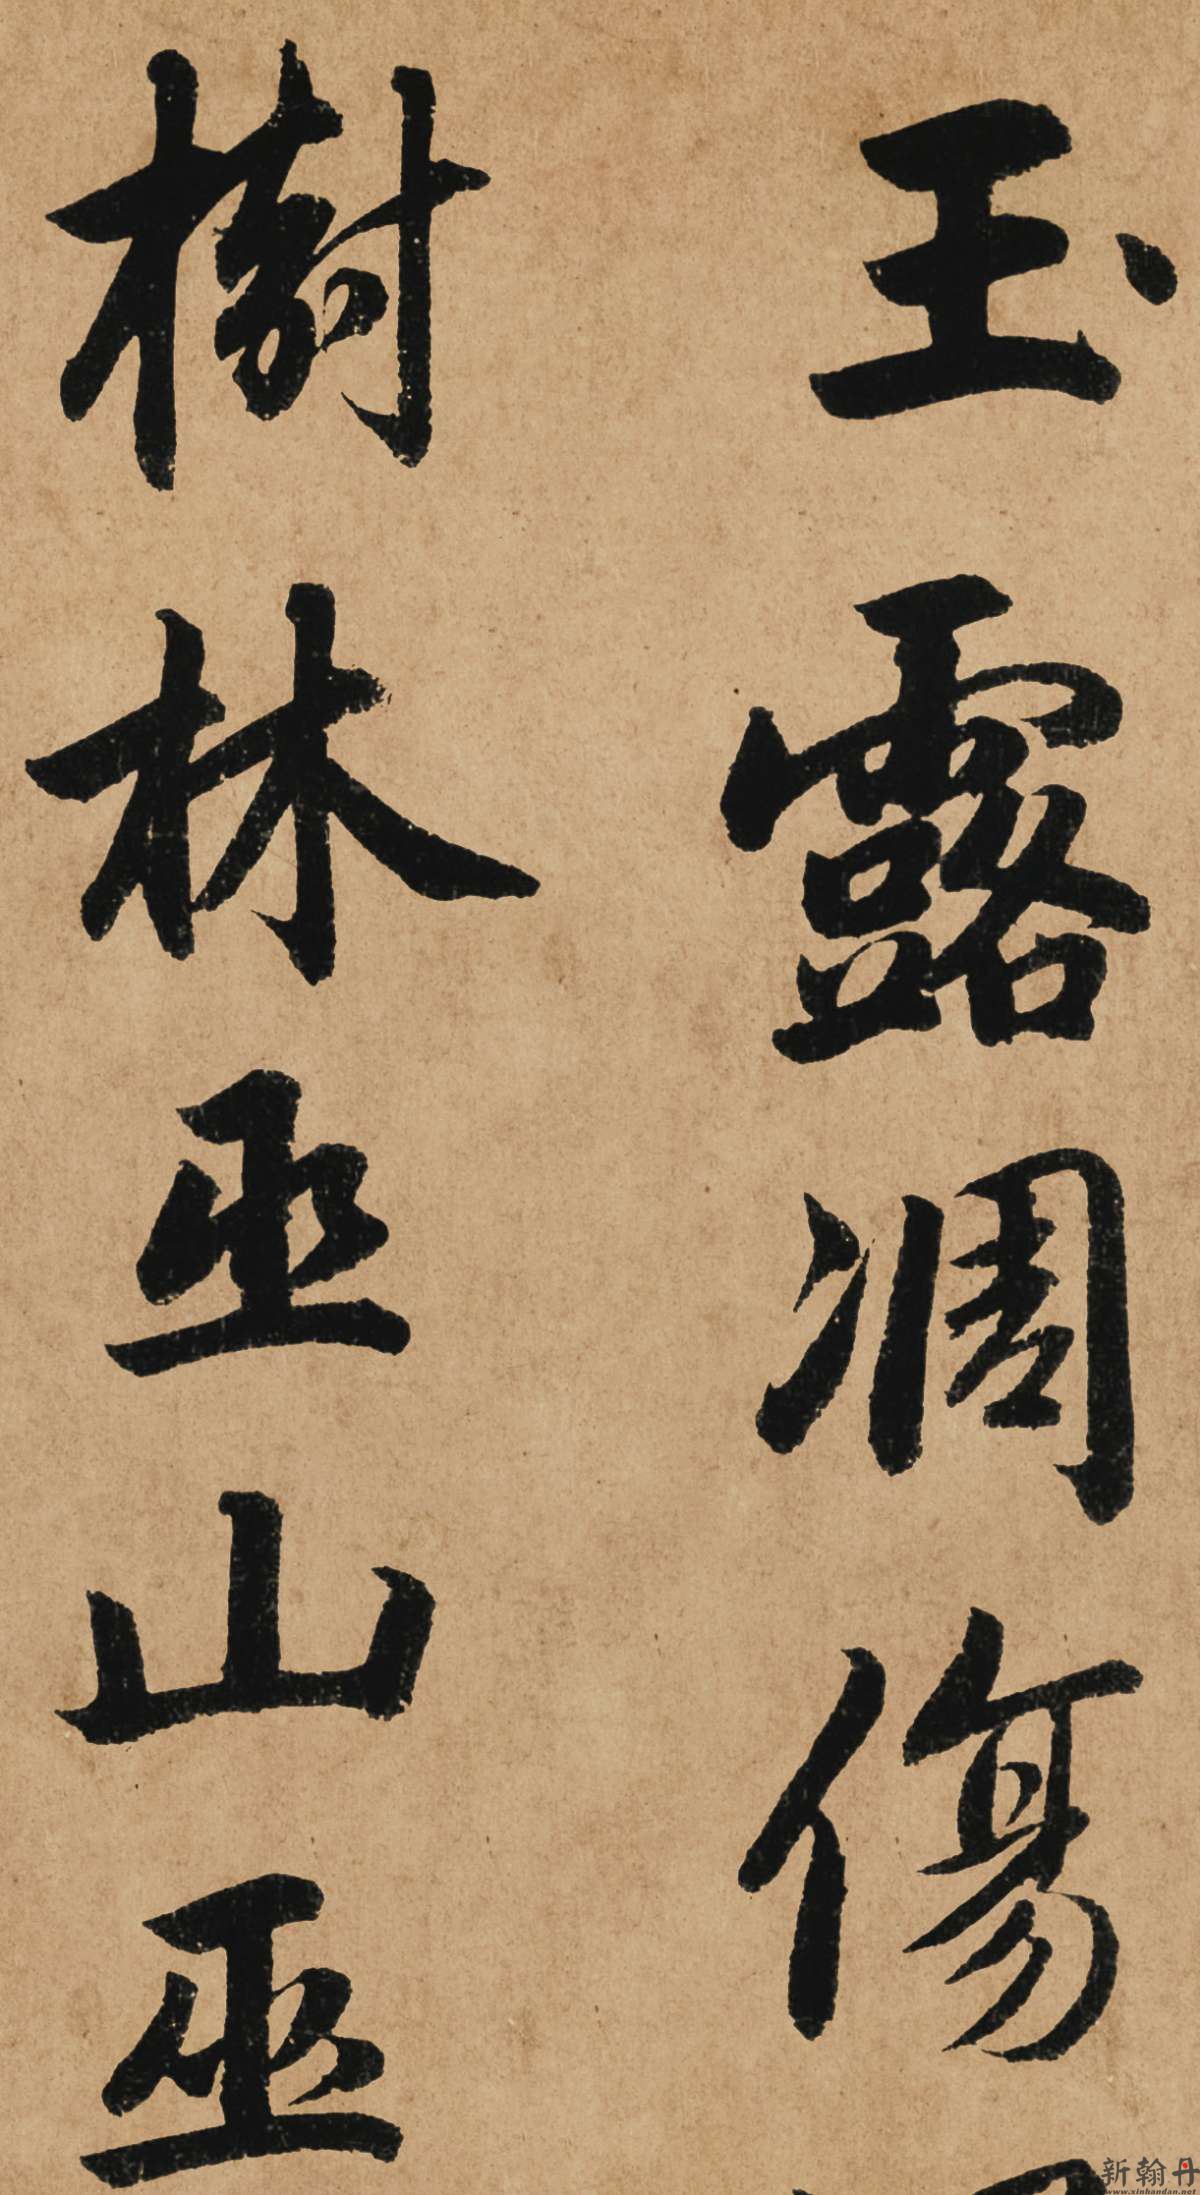 玉露凋傷
樹林巫山巫
新翰丹
www.xinhandan.net